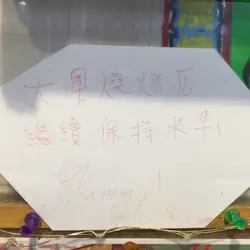 大潭燒烤店
繼續保持水準!
Yummy!